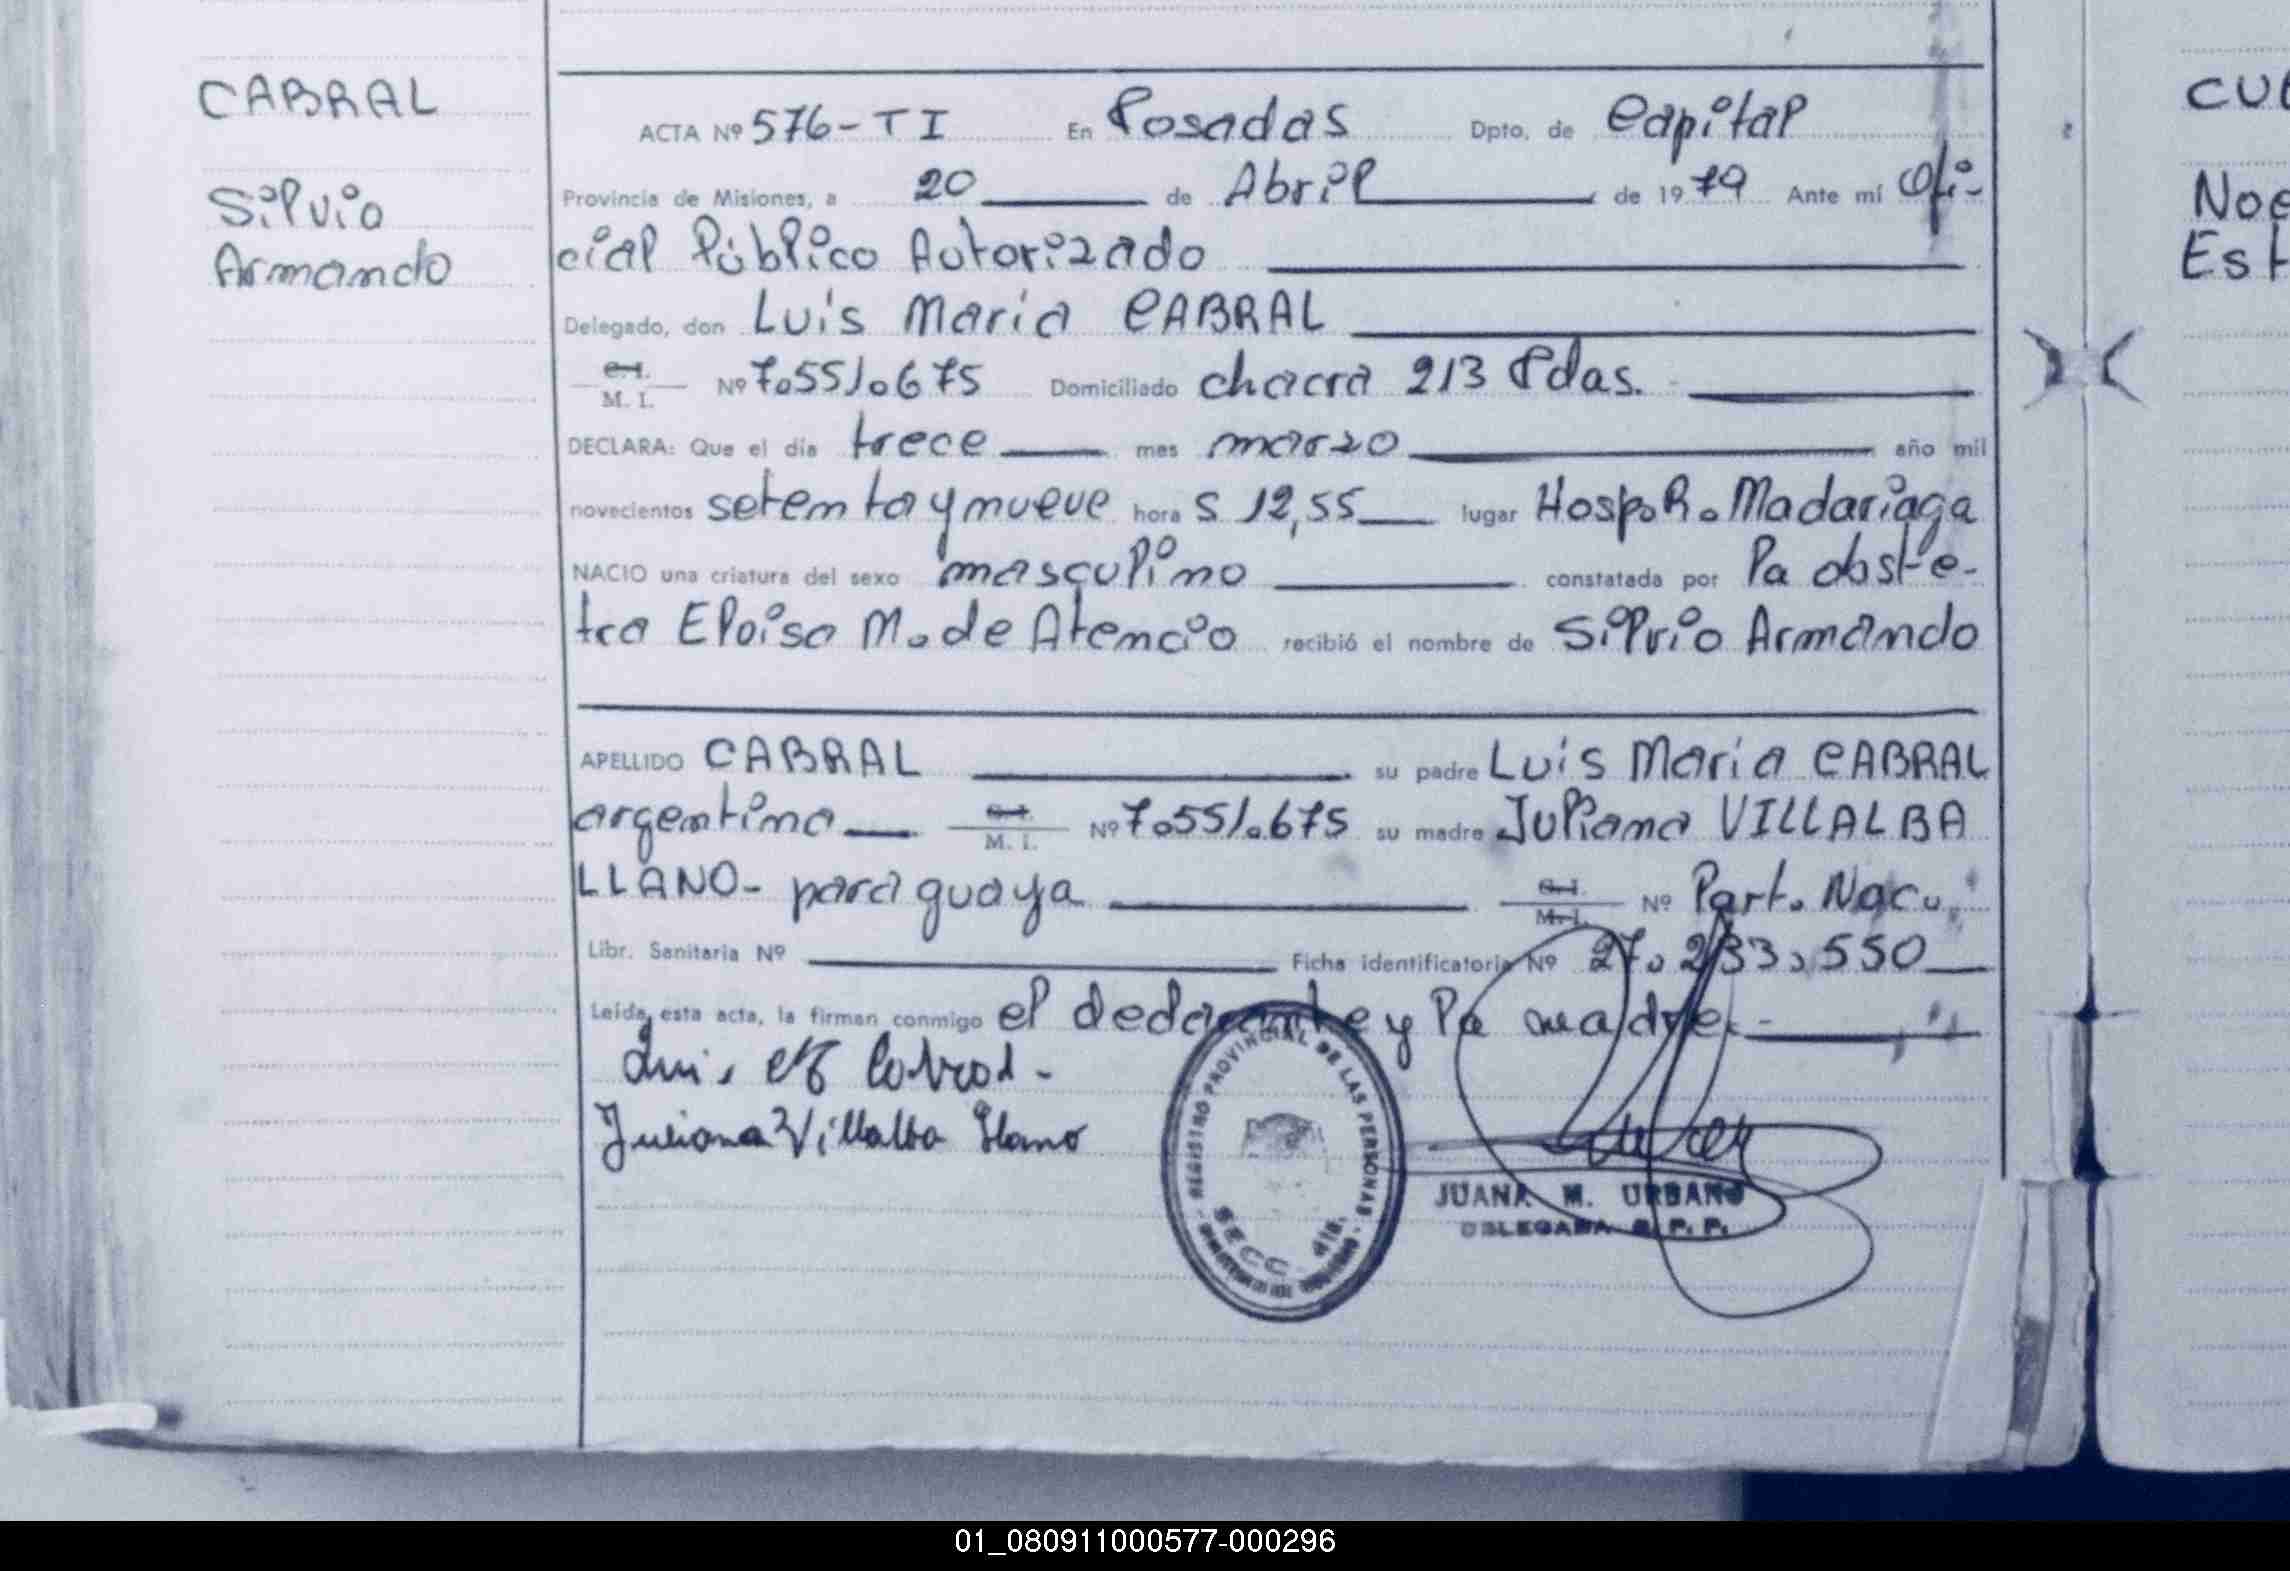 CABRAL
Silvio
Armando
ACTA Nº 576-TI En Posadas Dpto. de Capital
Provincia de Misiones, a 20 de Abril de 1979 Ante mí Ofi-
cial Público Autorizado
Delegado, don Luis Maria CABRAL
C.I.
M. I. Nº 7.551.675 Domiciliado chacra 213 Pdas.
DECLARA: Que el día trece mes marzo año mil
novecientos setenta y nueve hora s 12,55 lugar Hosp. R. Madariaga
NACIO una criatura del sexo masculino constatada por la obste-
tra Eloisa M. de Atencio recibió el nombre de Silvio Armando
APELLIDO CABRAL su padre Luis Maria CABRAL
argentino C.I. M. I. Nº 7.551.675 su madre Juliana VILLALBA
LLANO- paraguaya C.I. M.I. Nº Part. Nac.
Libr. Sanitaria Nº Ficha identificatoria Nº 27.233.550
Leída, esta acta, la firman conmigo el declarante y la madre.-
Luis M Cabral -
Juliana Villalba Llano
REGISTRO PROVINCIAL DE LAS PERSONAS
SECC
JUANA M. URBANO
DELEGADA R. P. P.
CU
Noe
Est
01_080911000577-000296